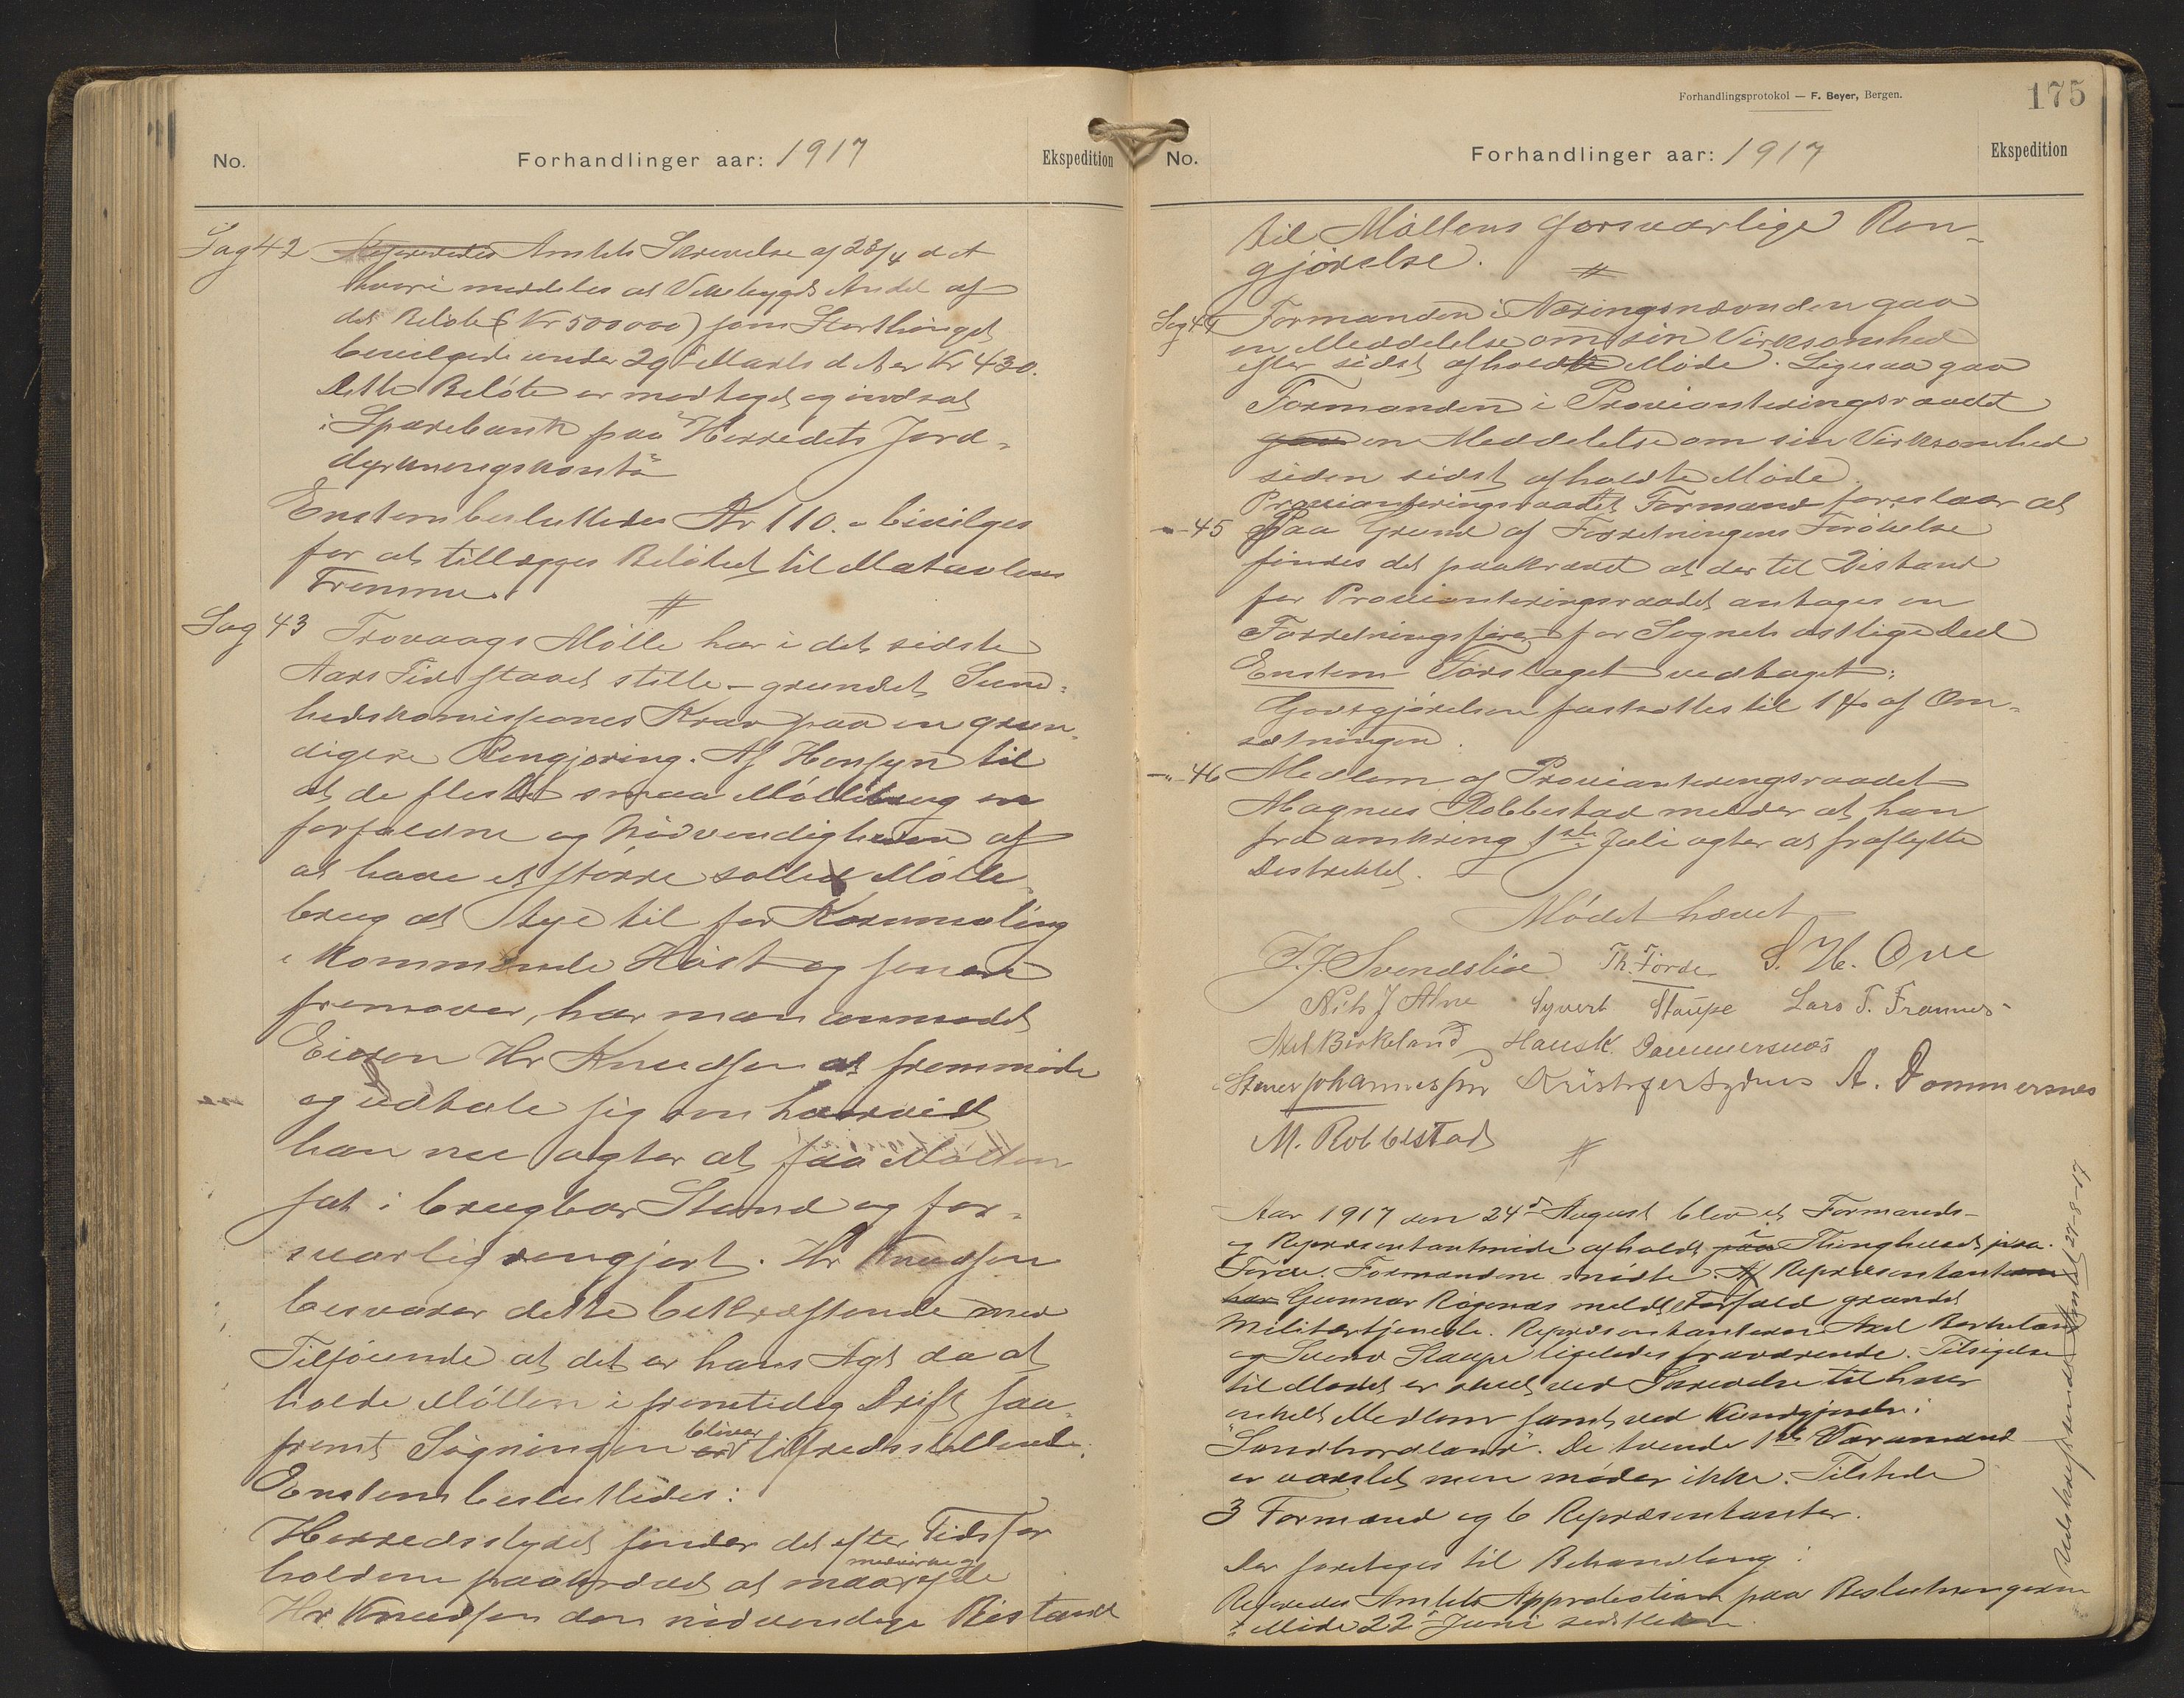 No.
Forhandlinger aar: 1917
Ekspedition
Sag 42 Refereredes Amtets Skrivelse af 28/4 d. A
hvori meddeles at Vikebygds Andel af
det Beløb (Kr 500000) som Storthinget
bevilgede under 29 Marts d. A er Kr 430.
Dette Beløb er modtaget og indsat
i Sparebank paa Herredets Jord-
dyrkningskonto
Enstem besluttedes Kr 110.- bevilges
for at tillægges Beløbet til
Fremme.
Sag 43 Trovaags Mølle har i det sidste
Aars Tid staaet stille - grundet Sund-
hedskomissionens Krav paa en grun-
digere Rengjøring. Af Hensyn til
at de fleste smaa Møllebrug er
forfaldne og Nødvendigheden af
at have et større Mølle-
brug at ty til for Kornmaling
i kommende Høst og senere
fremover, har man anmodet
Eieren Hr Knudsen at fremmøde
og udtale sig om hvorvidt
han nu agter at faa Møllen
sat i brugbar Stand og for-
svarlig rengjort. Hr Knudsen
besvarer dette bekræftende med
Tilføiende at det er hans Agt da at
holde Møllen i fremtidig Drift saa-
fremt Søgningen er bliver tilfredsstillende.
Enstem besluttedes:
Herredsstyret finder det efter Tidsfor
holdene paakrævet at medvirke og yde
Hr. Knudsen den nødvendige Bistand
Forhandlingsprotokol — F. Beyer, Bergen.
175
No.
Forhandlinger aar: 1917
Ekspedition
til Møllens forsvarlige Ren-
gjørelse.
Sag 44 Formanden i Næringsnævnden gav
en Meddelelse om sin Virksomhed
efter sidst afholdte Møde. Ligesaa gav
Formanden i Provianteringsraadet
gav en Meddelelse om sin Virksomhed
siden sidst afholdte Møde.
Provianteringsraadets Formand foreslaar at
-"- 45 Paa Grund af Forretningens Forøkelse
findes det paakrævet at der til Bistand
for Provianteringsraadet antages en
Forretningsfører for Sognets østlige Deel
Enstem Forslaget vedtaget:
Godtgjørelsen fastsættes til 1 % af Om-
sætningen.
-"- 46 Medlem af Provianteringsraadet
Magnus Robbestad melder at han
fra omkring 1ste Juli agter at fraflytte
Distriktet.
Mødet hævet
T. J. Svendsbøe Th. Førde S. H. Ove
Nils J Alne Syvert Staupe Lars T. Framnes
Axel Birkeland Hans K. Dommersnæs
Stener Johannessen Kristofer Sydnes A. Dommersnes
M. Robbestad
Aar 1917 den 24d August blev et Formands-
og Repræsentantmøde afholdt paa i Thinghuset paa
Førde. Formændene møtte. Af Repræsentanterne
har Gunnar Røgenæs meldt Forfald grundet
Militærtjeneste. Repræsentanterne Axel Berkeland
og Svend Staupe ligeledes fraværende. Tilsigelse
til Mødet er skeet ved Skrivelse til hver
enkelt Medlem samt ved Kundgjørelse i
"Søndhordland". De tvende 1ste Varamænd
er varslet men møder ikke. Tilstede
3 Formænd og 6 Repræsentanter.
Der foretoges til Behandling:
Refereredes Amtets Approbation paa Beslutningerne
i Møde 22d Juni sidstleden
Udskrift sendt Amtet 27-8-17